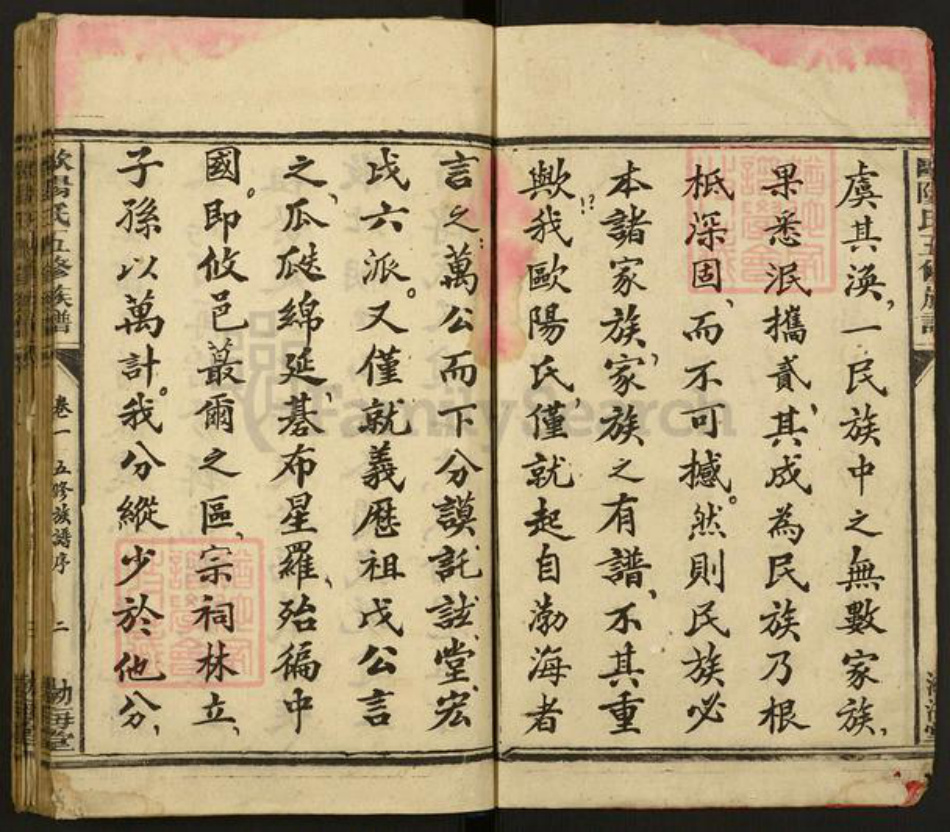 虞其渙、一民族中之無數家族、
果悉泯攜貳、其成為民族乃根
柢深固、而不可撼。然則民族必
本諸家族、家族之有譜、不其重
歟!?我歐陽氏、僅就起自渤海者
言之:萬公而下分謨、託、詃、堂、宏、
戉六派。又僅就義歷祖戉公言
之、瓜瓞綿延、碁布星羅、殆徧中
國。即攸邑蕞爾之區、宗祠林立、
子孫以萬計。我分縱少於他分、
歐陽氏五修族譜
卷一 五修族譜序 二
渤海堂
FamilySearch